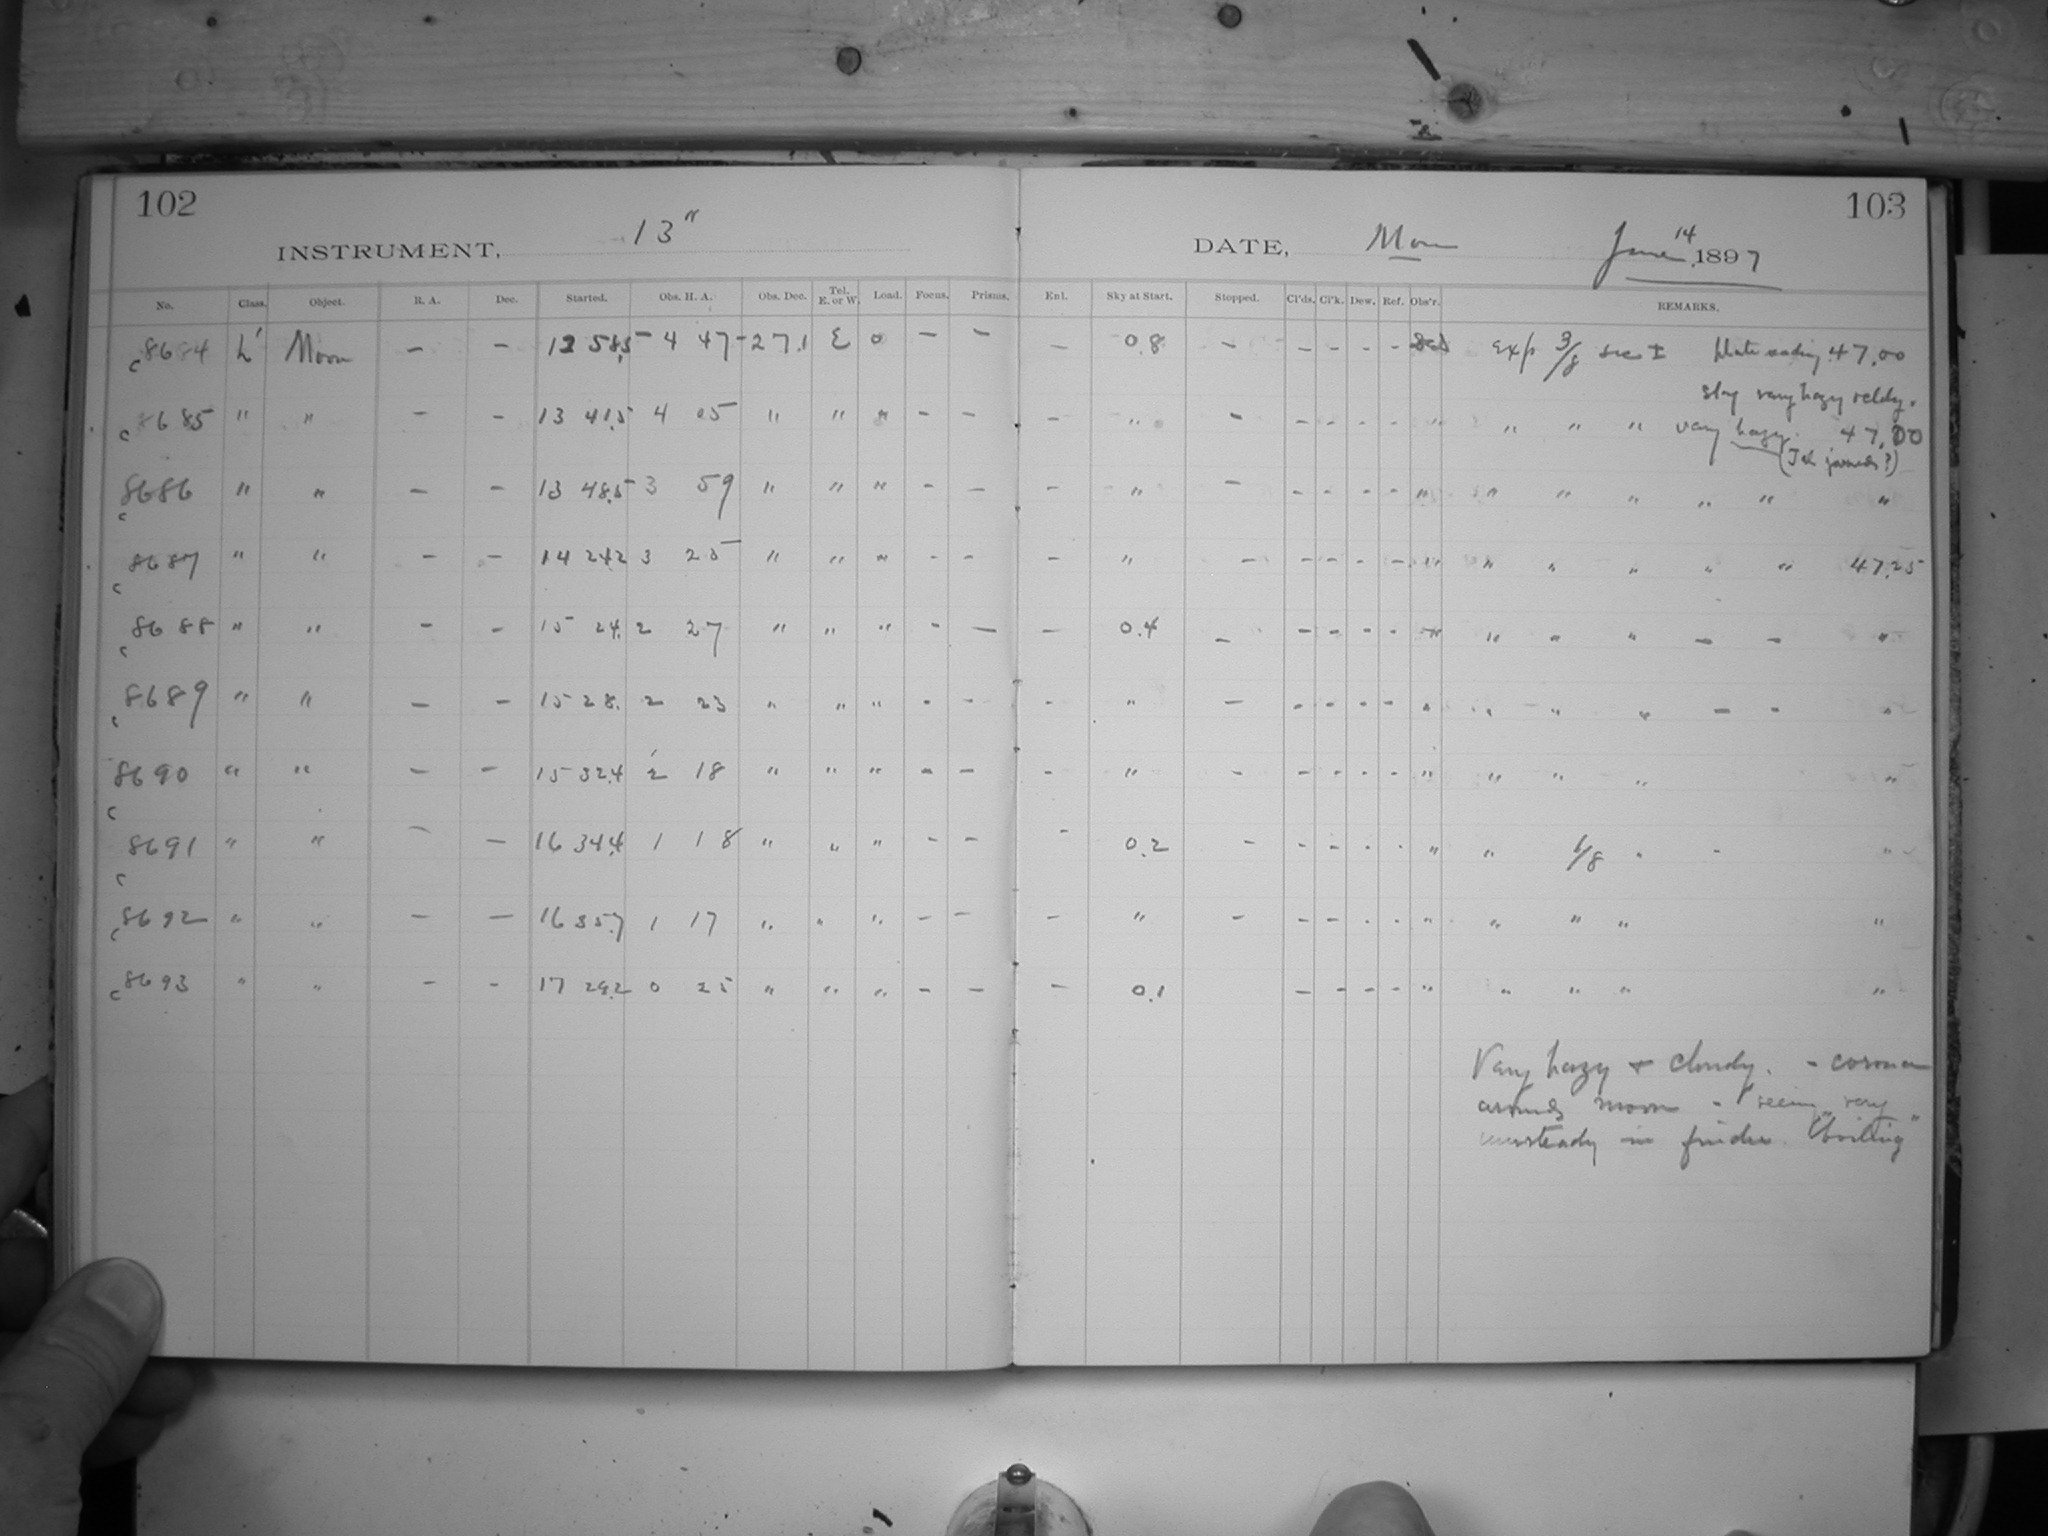 102
103
INSTRUMENT, 13"
DATE, Mon June 14, 1897
No. Class. Object. R. A. Dec. Started. Obs. H. A. Obs. Dec. Tel. E. or W. Load. Focus. Prisms. Enl. Sky at Start. Stopped. Cl'ds. Cl'k. Dew. Ref. Obs'r. REMARKS.
c 8684 L' Moon – – 12 58.5 – 4 47 –27.1 E 0 – – – 0.8 – – – – – Exp 3/8 sec ± Plate reading 47.00
sky very hazy
c 8685 " " – – 13 41.5 4 05 " " " – – – " – – – – – " " " " very hazy. 47.00
c 8686 " " – – 13 48.5 3 59 " " " – – – " – – – – – " " " " " " "
c 8687 " " – – 14 24.2 3 25 " " " – – – " – – – – – " " " " " " 47.25
c 8688 " " – – 15 24. 2 27 " " " – – – 0.4 – – – – – " " " " – – "
c 8689 " " – – 15 28. 2 23 " " " – – – " – – – – – " " " " – – "
c 8690 " " – – 15 32.4 2 18 " " " – – – " – – – – – " " " " "
c 8691 " " – – 16 34.4 1 18 " " " – – – 0.2 – – – – – " " 1/8 " – "
c 8692 " " – – 16 35.7 1 17 " " " – – – " – – – – – " " " " "
c 8693 " " – – 17 29.2 0 25 " " " – – – 0.1 – – – – " " " " "
Very hazy + cloudy. – corona
around moon – seeing very
unsteady in finder. "boiling"